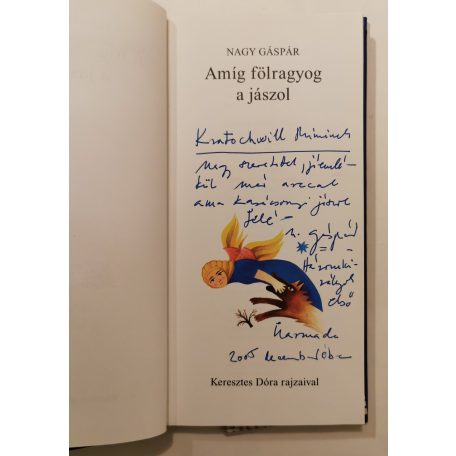 NAGY GÁSPÁR
Amíg fölragyog
a jászol
Kratochwill Miminek
nagy szeretettel, jémelé-
kül már arccal
ama karácsonyi jászol
felé –
n. gáspár
Háromki-
rályok
első
2005 decemberében
Keresztes Dóra rajzaival